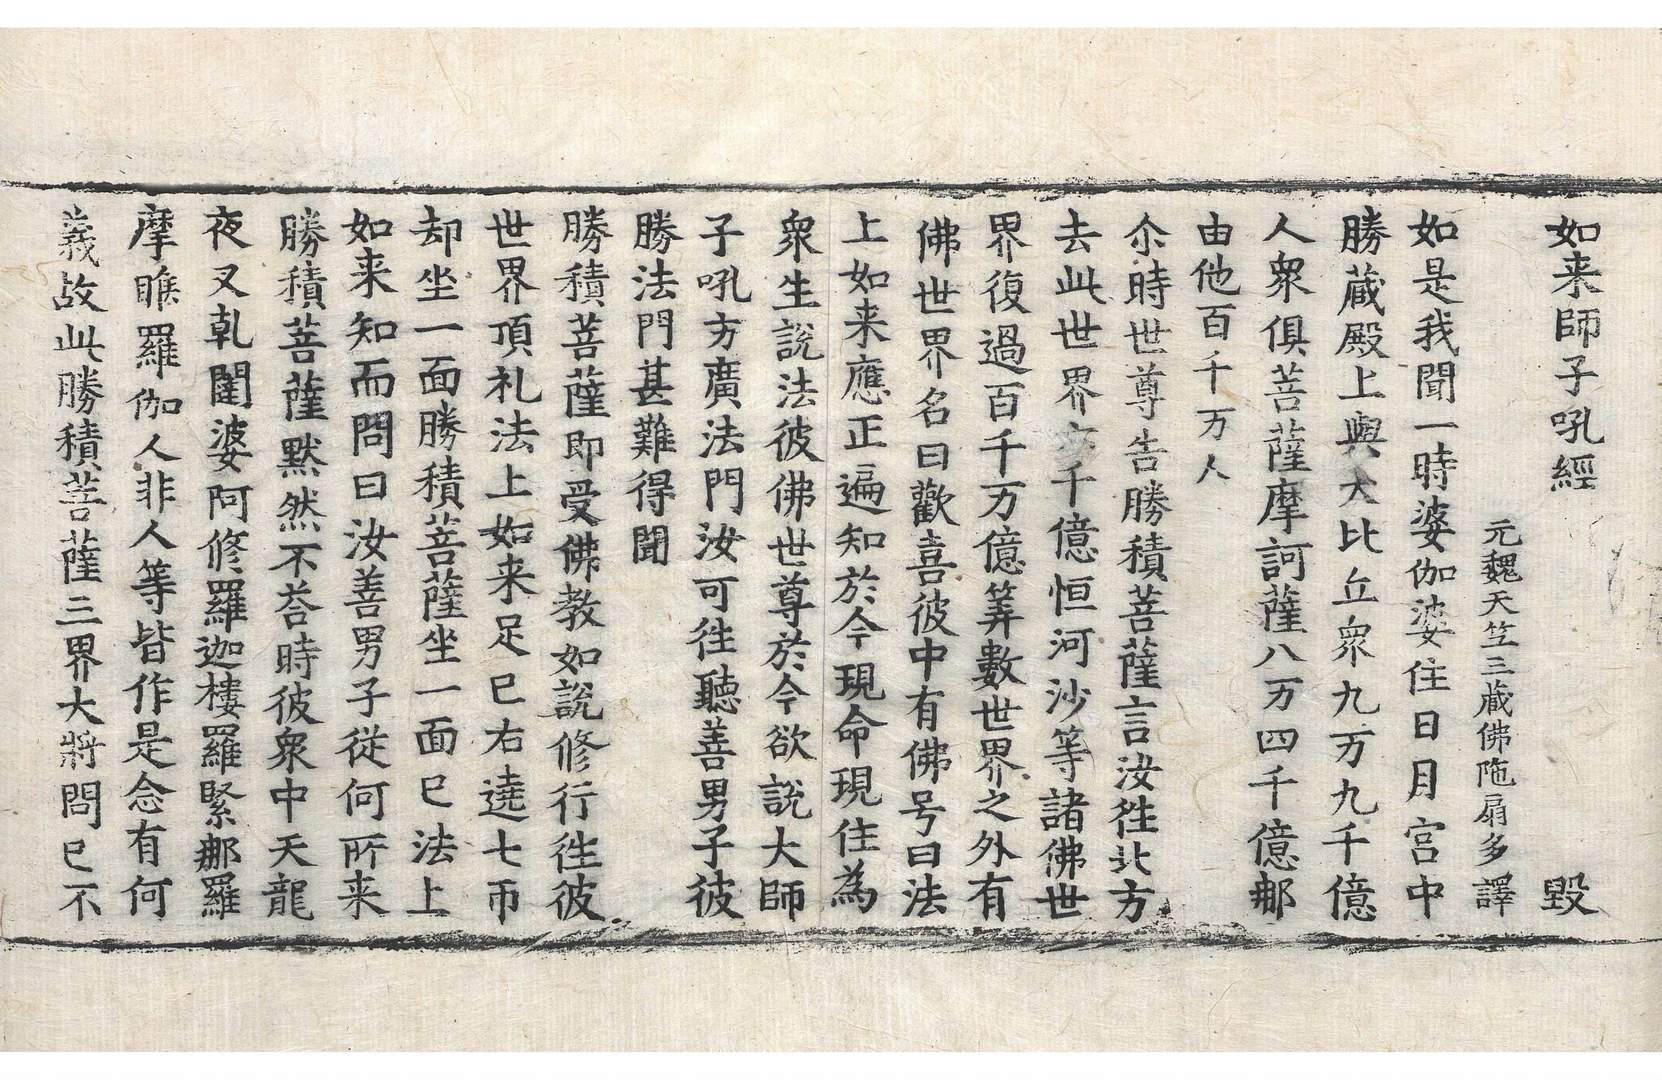 如来師子吼經 毀
元魏天竺三藏佛陁扇多譯
如是我聞一時婆伽婆住日月宮中
勝藏殿上與大比丘衆九万九千億
人衆俱菩薩摩訶薩八万四千億那
由他百千万人
尒時世尊告勝積菩薩言汝徃北方
去此世界 千億恒河沙等諸佛世
界復過百千万億筭數世界之外有
佛世界名曰歡喜彼中有佛号曰法
上如来應正遍知於今現命現住為
衆生說法彼佛世尊於今欲說大師
子吼方廣法門汝可徃聽善男子彼
勝法門甚難得聞
勝積菩薩即受佛教如說修行徃彼
世界頂礼法上如来足已右遶七帀
却坐一面勝積菩薩坐一面已法上
如来知而問曰汝善男子從何所来
勝積菩薩默然不荅時彼衆中天龍
夜叉乹闥婆阿修羅迦樓羅緊那羅
摩睺羅伽人非人等皆作是念有何
義故此勝積菩薩三界大將問已不